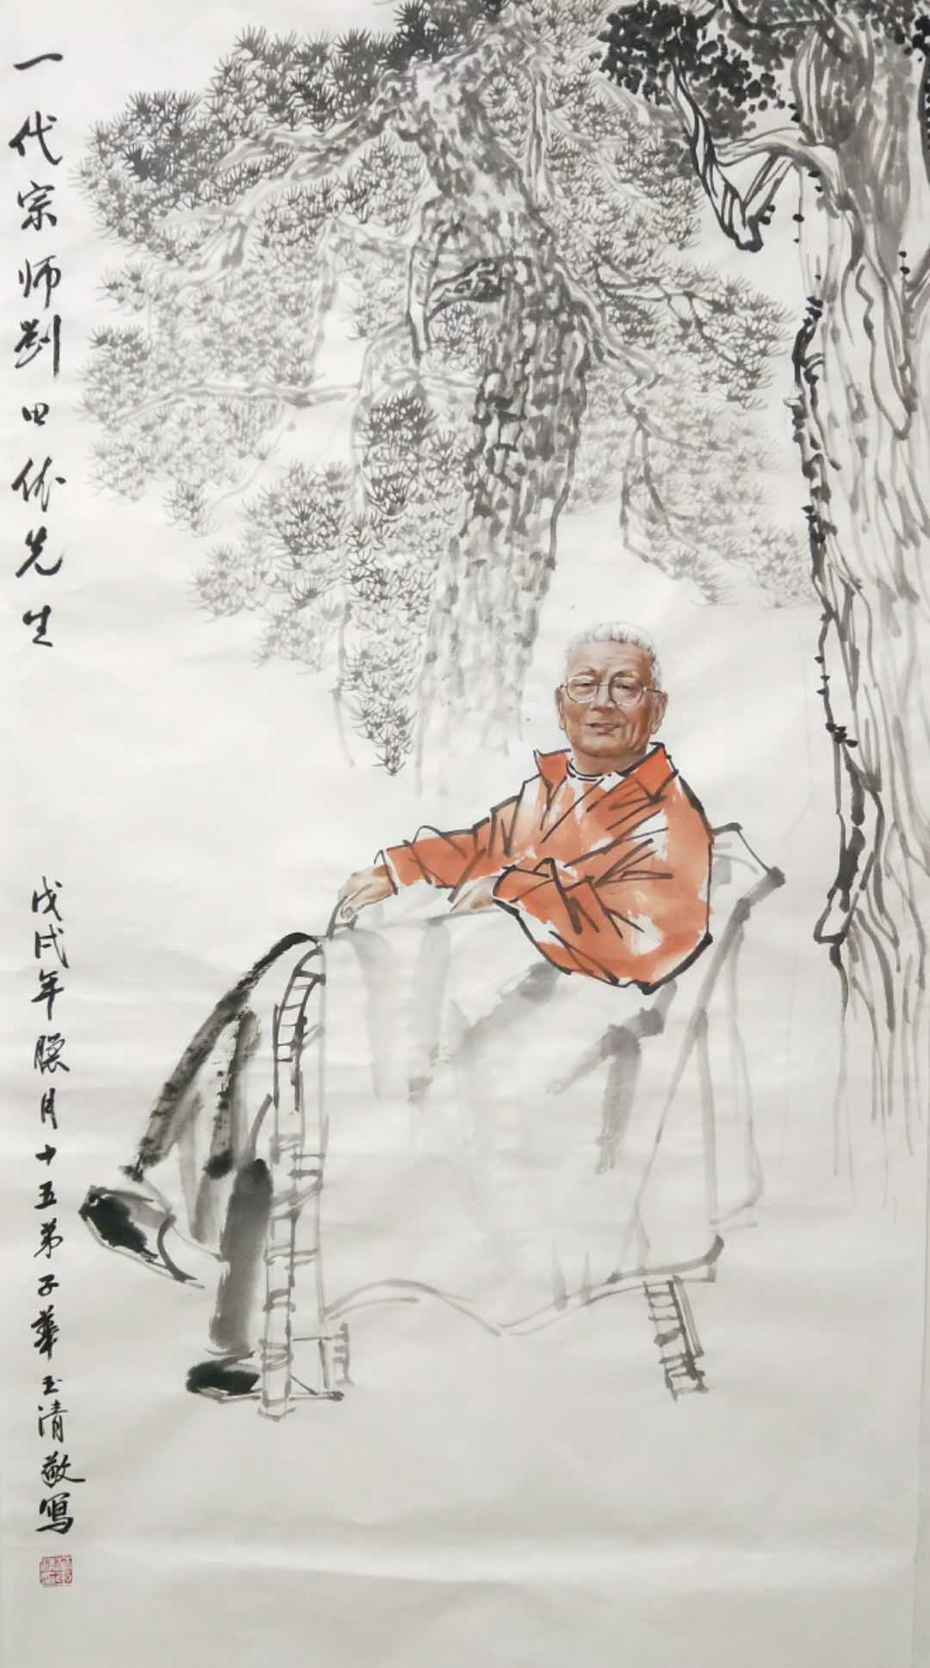 一代宗师刘田依先生
戊戌年腊月十五弟子华玉清敬写